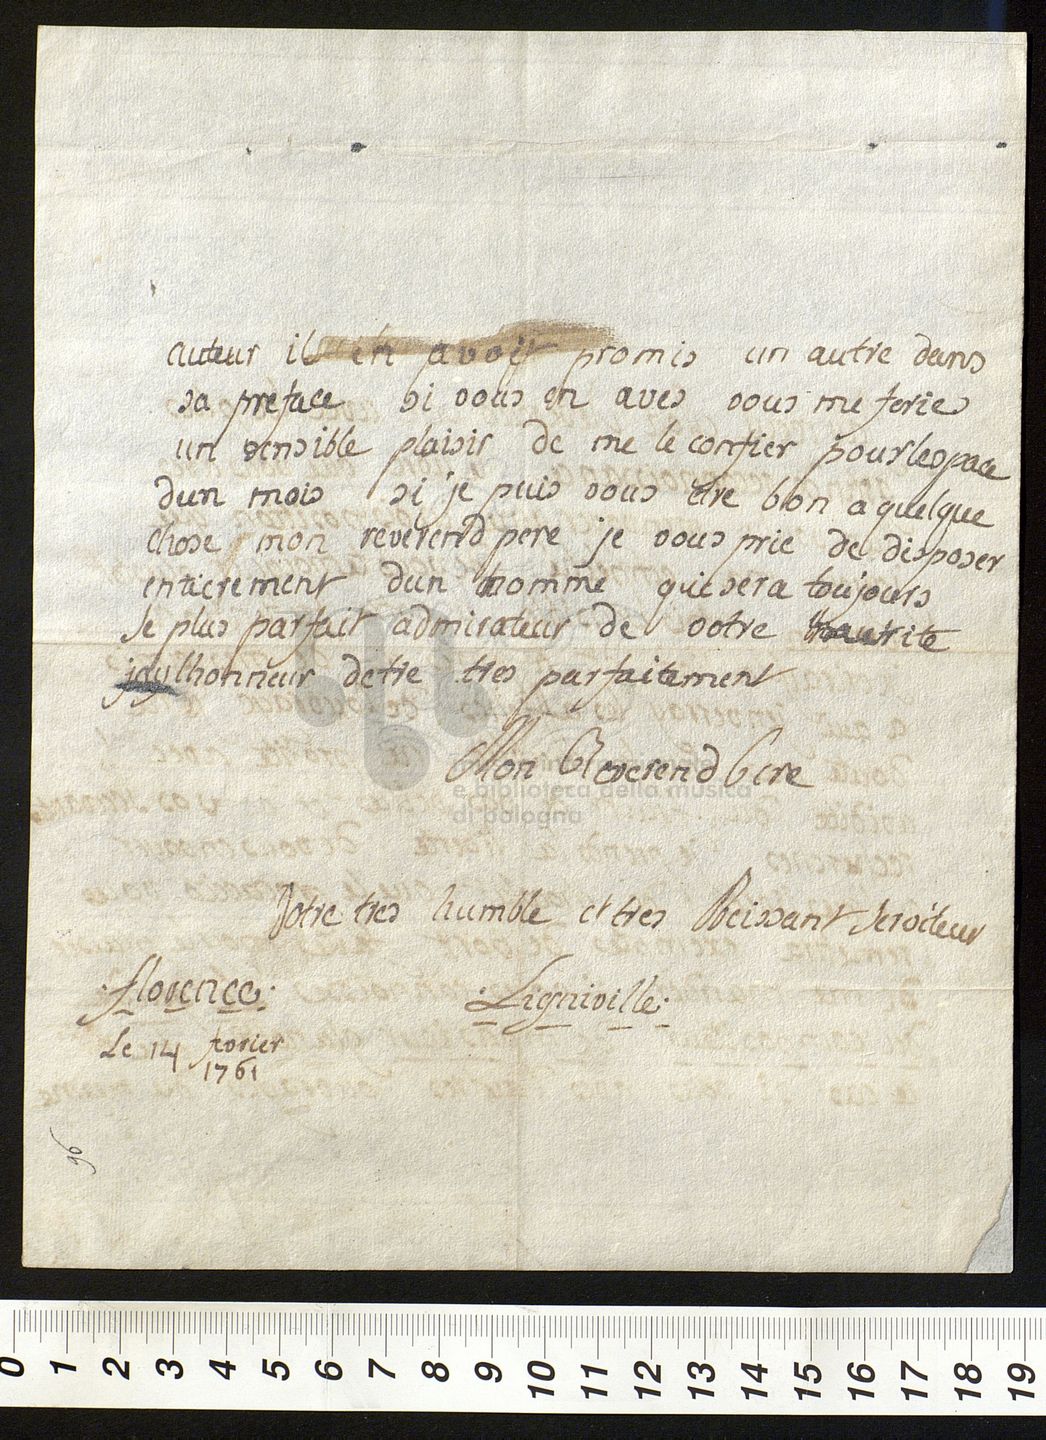 auteur il en avoit promis un autre dans
sa preface si vous en aves vous me feries
un sensible plaisir de me le confier pour lespace
dun mois si je puis vous etre bon a quelque
chose mon reverend pere je vous prie de disposer
entierement dun homme qui sera toujours
le plus parfait admirateur de votre
jay lhonneur detre tres parfaitement
Mon Reverend Pere
e biblioteca della musica
di bologna
Votre tres humble et tres Obeissant serviteur
.florence. .Ligniville.
Le 14 fevrier
1761
96
0 1 2 3 4 5 6 7 8 9 10 11 12 13 14 15 16 17 18 19